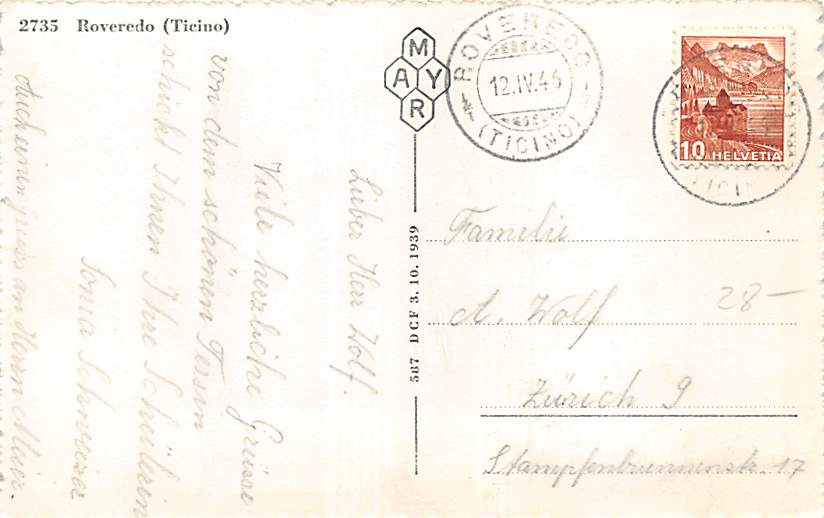 2735 Roveredo (Ticino)
MAYR
ROVEREDO
12.IV.46
(TICINO)
10 HELVETIA
TICIN
587 DCF 3. 10. 1939
Lieber Herr Wolf.
Viele herzliche Grüsse
von dem schönen Tessin
schickt Ihnen Ihre Schülerin
Sonia Schweizer
Auch einen gruss an Herrn Meier.
Familie
A. Wolf
28-
Zürich 9
Stampfenbrunnenstr. 17